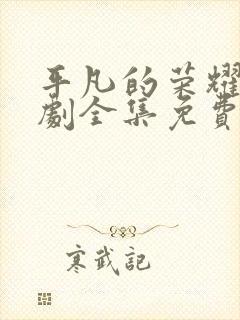 平凡的荣耀
劇全集免費
寒武記